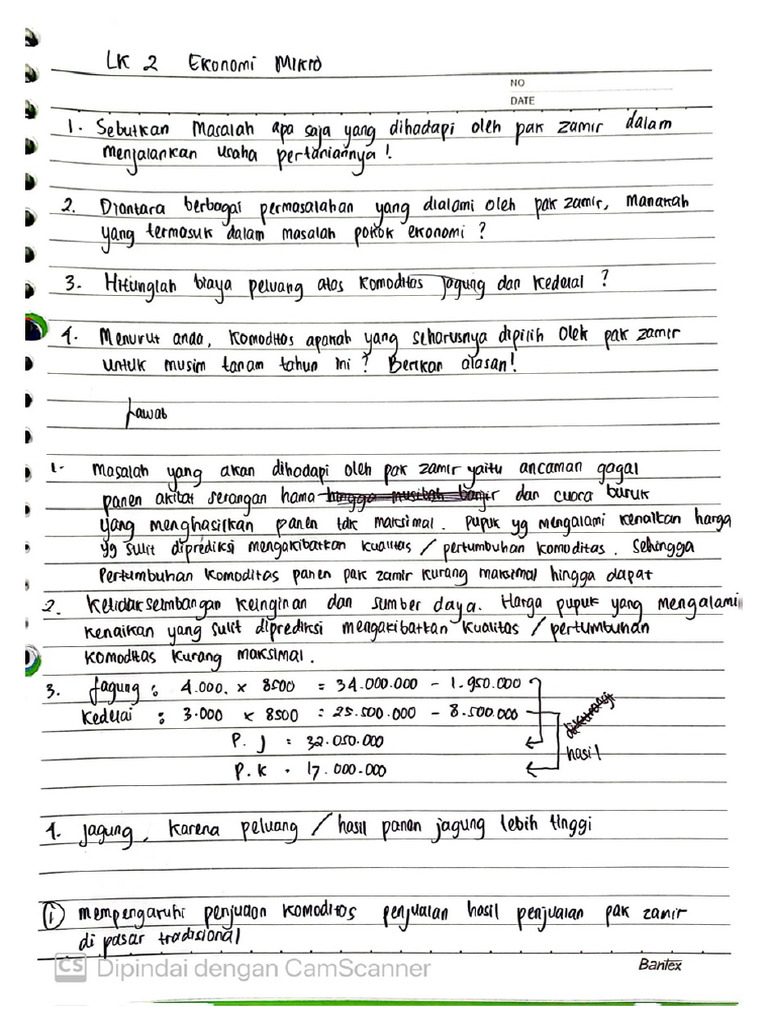 LK 2 Ekonomi Mikro
NO
DATE
1. Sebutkan Masalah apa saja yang dihadapi oleh pak zamir dalam
menjalankan usaha pertaniannya!
2. Diantara berbagai permasalahan yang dialami oleh pak zamir, Manakah
yang termasuk dalam masalah pokok ekonomi?
3. Hitunglah biaya peluang atas komoditas jagung dan kedelai?
4. Menurut anda, komoditas apakah yang seharusnya dipilih oleh pak zamir
untuk musim tanam tahun ini? Berikan alasan!
Jawab
1. Masalah yang akan dihadapi oleh pak zamir yaitu ancaman gagal
panen akibat serangan hama hingga musibah banjir dan cuaca buruk
yang menghasilkan panen tdk maksimal. pupuk yg mengalami kenaikan harga
yg sulit diprediksi mengakibatkan kualitas / pertumbuhan komoditas. Sehingga
Pertumbuhan komoditas panen pak zamir kurang maksimal hingga dapat
2. Ketidakseimbangan keinginan dan sumber daya. Harga pupuk yang mengalami
kenaikan yang sulit diprediksi mengakibatkan kualitas / pertumbuhan
komoditas kurang maksimal.
3. Jagung : 4.000. x 8500 = 34.000.000 - 1.950.000
Kedelai : 3.000 x 8500 = 25.500.000 - 8.500.000
P. J = 32.050.000
P. K = 17.000.000
dikurangi
hasil
4. Jagung, karena peluang / hasil panen jagung lebih tinggi
① mempengaruhi penjuaan komoditas penjualan hasil penjualan pak zamir
di pasar tradisional
CS Dipindai dengan CamScanner
Bantex